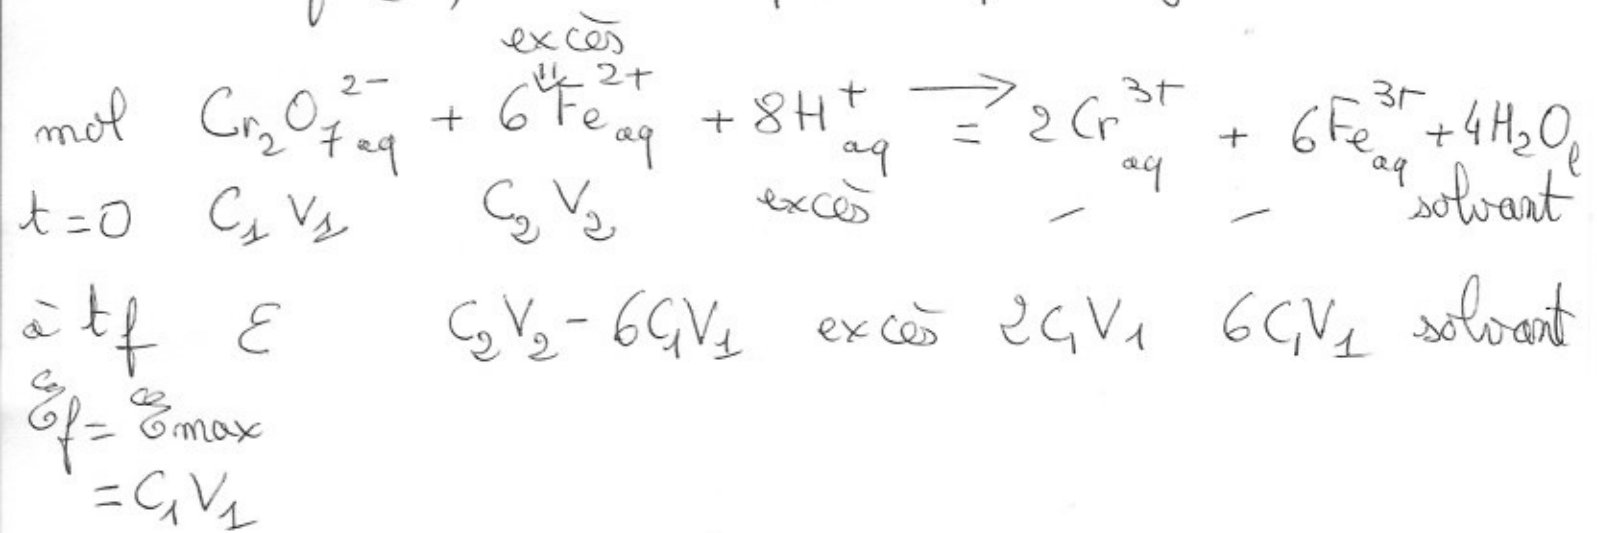 excès
"
mol Cr₂O₇²⁻aq + 6 Fe²⁺aq + 8H⁺aq ⟶ = 2Cr³⁺aq + 6Fe³⁺aq + 4H₂Oℓ
t=0 C₁V₁ C₂V₂ excès – – solvant
à tf ε C₂V₂ - 6C₁V₁ excès 2C₁V₁ 6C₁V₁ solvant
ξf = ξmax
= C₁V₁